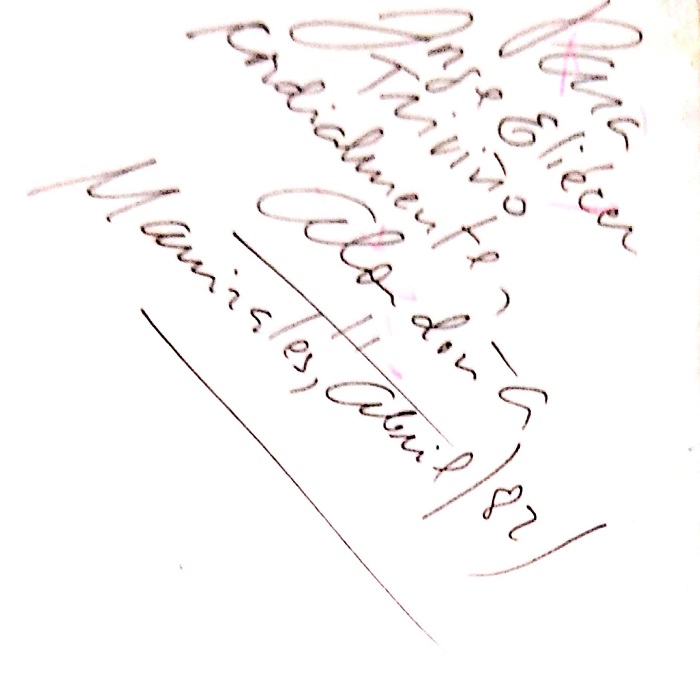 Para
Jose Eliécer
Triviño
cordialmente,
Manizales, Abril/82